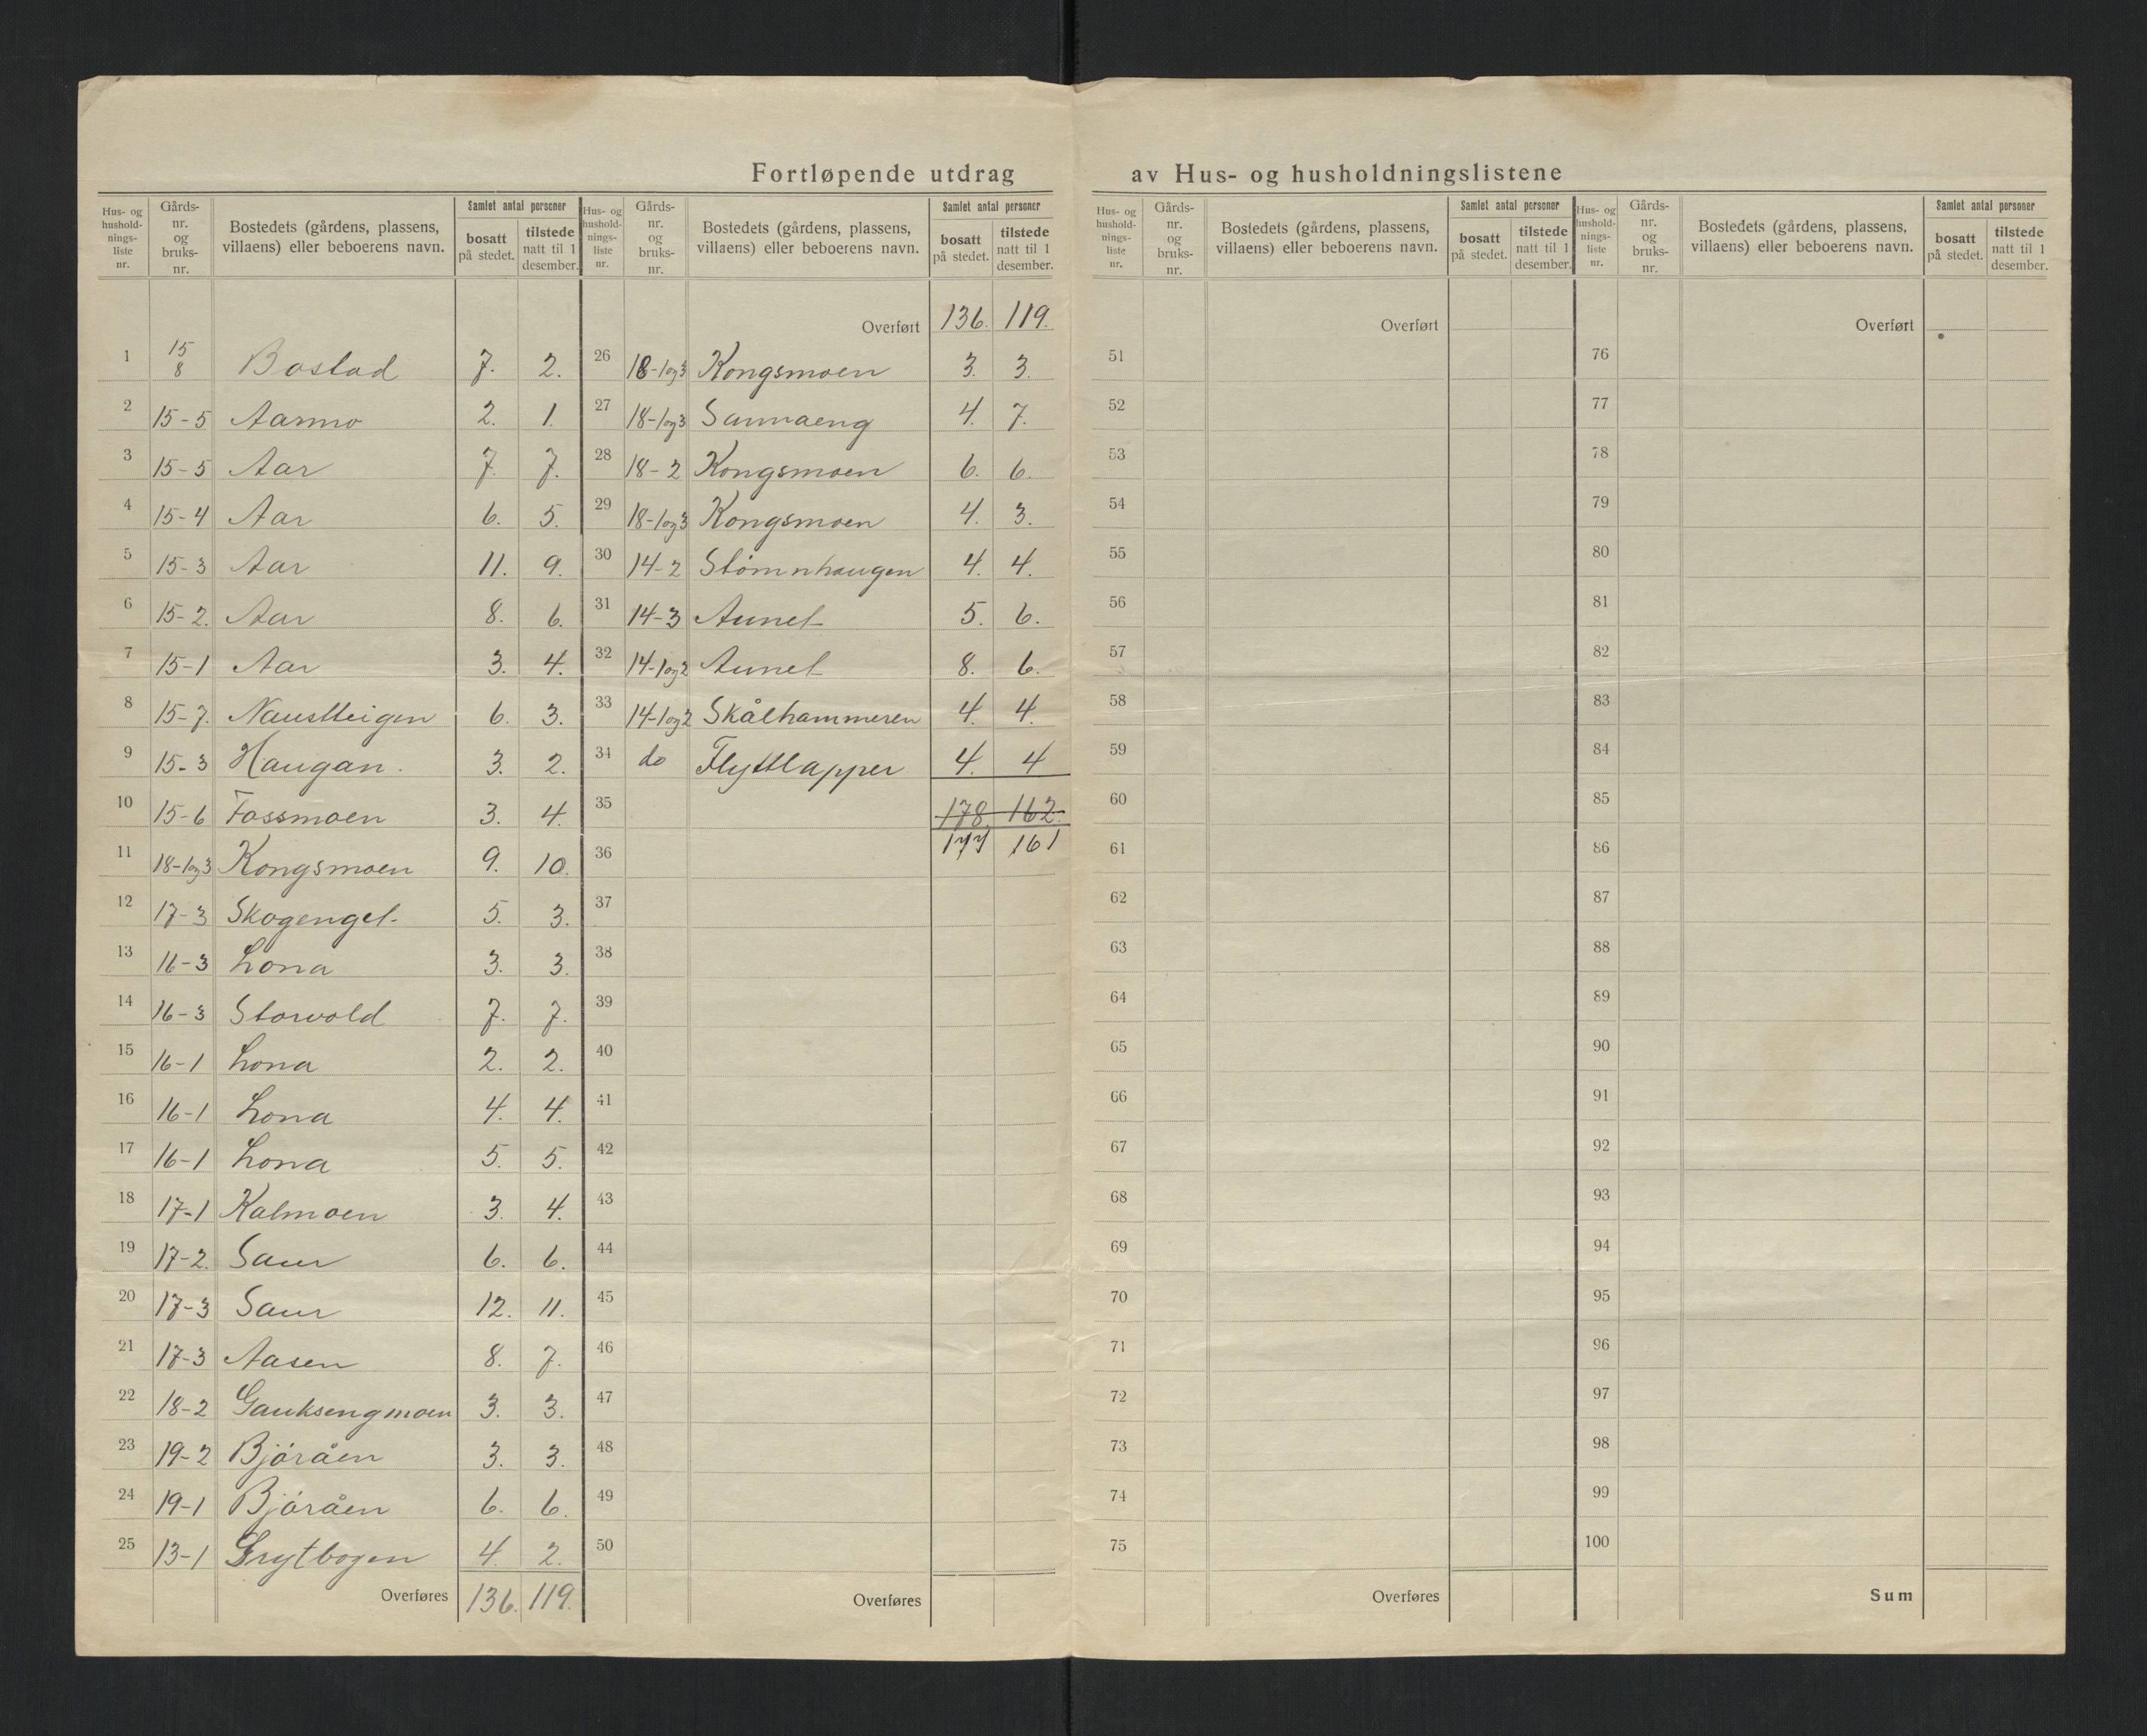 Fortløpende utdrag av Hus- og husholdningslistene
Hus- og hushold-nings-liste nr. | Gårds-nr. og bruks-nr. | Bostedets (gårdens, plassens, villaens) eller beboerens navn. | Samlet antal personer | bosatt på stedet. | tilstede natt til 1 desember.
1 15 8 Bostad 7. 2.
2 15-5 Aarmo 2. 1.
3 15-5 Aar 7. 7.
4 15-4 Aar 6. 5.
5 15-3 Aar 11. 9.
6 15-2. Aar 8. 6.
7 15-1 Aar 3. 4.
8 15-7. Naustteigen 6. 3.
9 15-3 Haugan. 3. 2.
10 15-6 Fossmoen 3. 4.
11 18-1og3 Kongsmoen 9. 10.
12 17-3 Skogenget. 5. 3.
13 16-3 Lona 3. 3.
14 16-3 Storvold 7. 7.
15 16-1 Lona 2. 2.
16 16-1 Lona 4. 4.
17 16-1 Lona 5. 5.
18 17-1 Kalmoen 3. 4.
19 17-2. Saur 6. 6.
20 17-3 Saur 12. 11.
21 17-3 Aasen 8. 7.
22 18-2 Gauksengmoen 3. 3.
23 19-2 Bjøråen 3. 3.
24 19-1 Bjøråen 6. 6.
25 13-1 Grytbogen 4. 2.
Overføres 136. 119.
Hus- og hushold-nings-liste nr. | Gårds-nr. og bruks-nr. | Bostedets (gårdens, plassens, villaens) eller beboerens navn. | Samlet antal personer | bosatt på stedet. | tilstede natt til 1 desember.
Overført 136. 119.
26 18-1og3 Kongsmoen 3. 3.
27 18-1og3 Sannaeng 4. 7.
28 18-2 Kongsmoen 6. 6.
29 18-1og3 Kongsmoen 4. 3.
30 14-2 Stømnhaugen 4. 4.
31 14-3 Aunet 5. 6.
32 14-1og2 Aunet 8. 6.
33 14-1og2 Skålhammeren 4. 4.
34 do Flyttlapper 4. 4
35 178. 162.
36 177 161
37
38
39
40
41
42
43
44
45
46
47
48
49
50
Overføres
Hus- og hushold-nings-liste nr. | Gårds-nr. og bruks-nr. | Bostedets (gårdens, plassens, villaens) eller beboerens navn. | Samlet antal personer | bosatt på stedet. | tilstede natt til 1 desember.
Overført
51
52
53
54
55
56
57
58
59
60
61
62
63
64
65
66
67
68
69
70
71
72
73
74
75
Overføres
Hus- og hushold-nings-liste nr. | Gårds-nr. og bruks-nr. | Bostedets (gårdens, plassens, villaens) eller beboerens navn. | Samlet antal personer | bosatt på stedet. | tilstede natt til 1 desember.
Overført
76
77
78
79
80
81
82
83
84
85
86
87
88
89
90
91
92
93
94
95
96
97
98
99
100
Sum